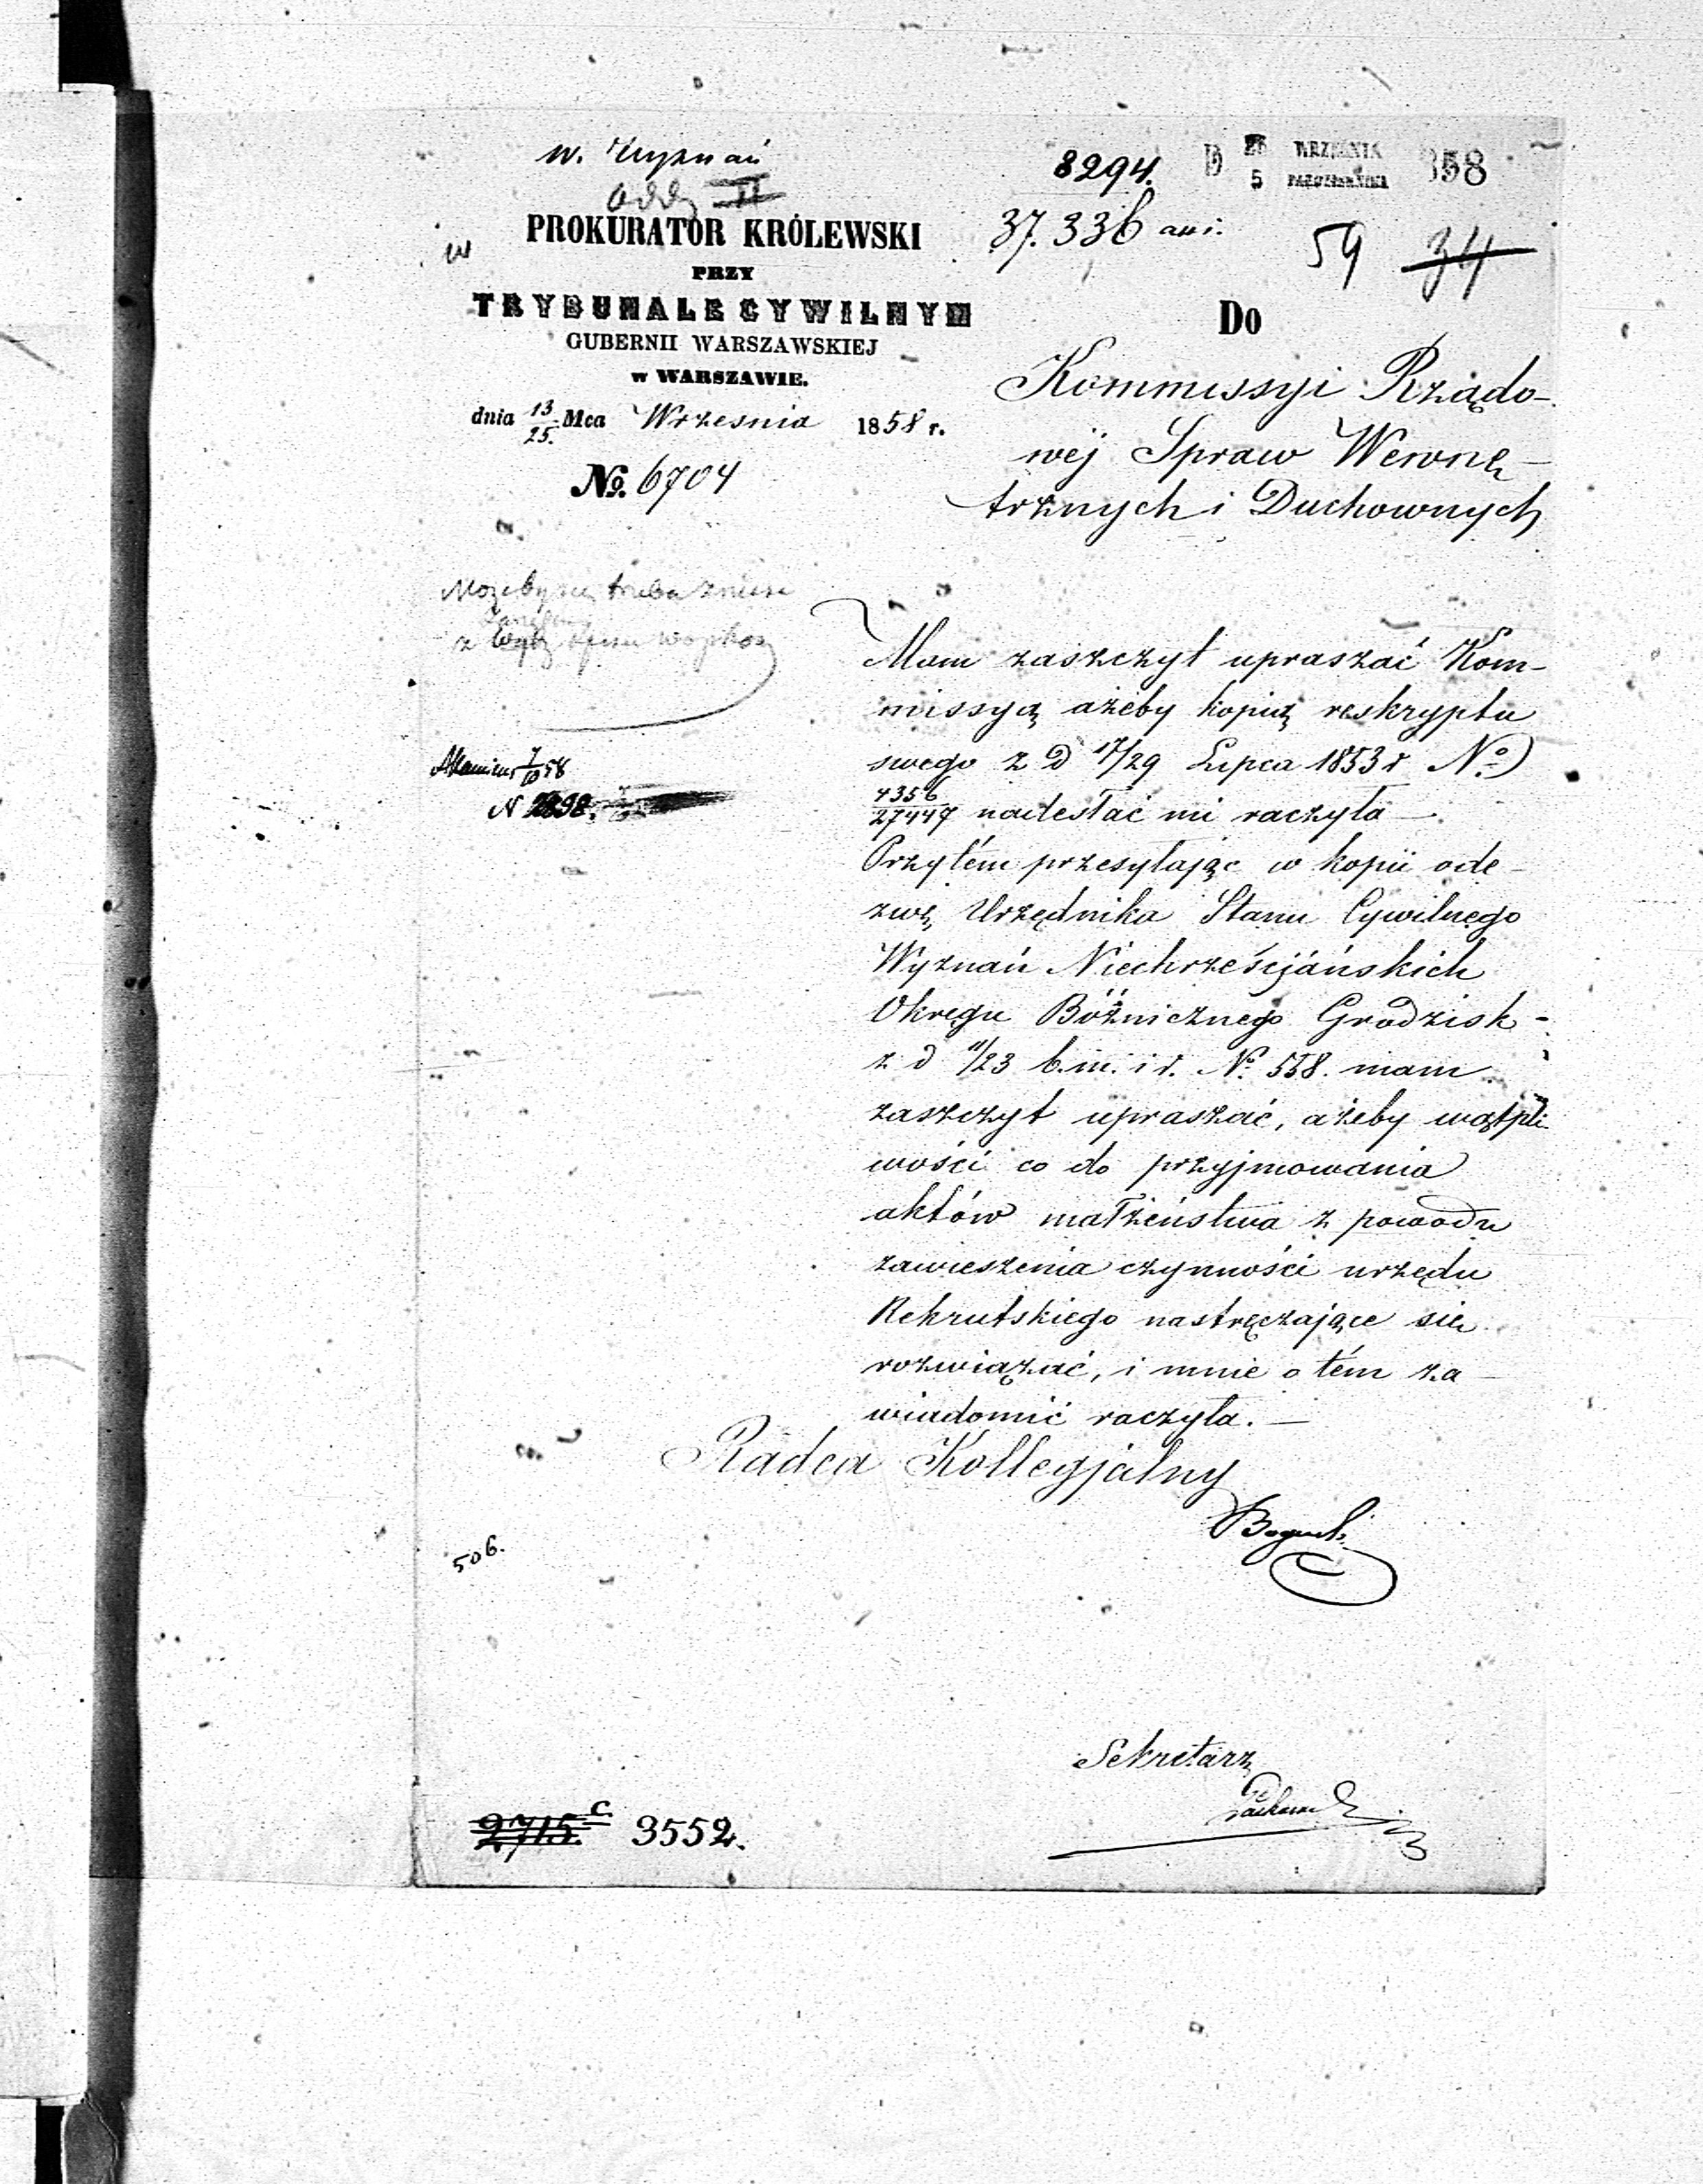 w. Wyznań
Oddz II
PROKURATOR KRÓLEWSKI
PRZY
TRYBUNALE CYWILNYM
GUBERNII WARSZAWSKIEJ
w WARSZAWIE.
dnia 13/25. Mca Września 1858 r.
No. 6704
8294.
D 5 WRZEŚNIA PAŹDZIERNIKA 858
37.336
59 34
Do
Kommissyi Rządo-
wéj Spraw Wewnę-
trznych i Duchownych
Możeby się trzeba znieść
z
N
Mam zaszczyt upraszać Kom-
missyą ażeby kopią reskryptu
swego z d 17/29 Lipca 1853 r No
4356/27447 nadesłać mi raczyła —
Przytém przesyłając w kopii ode-
zwę Urzędnika Stanu Cywilnego
Wyznań Niechrześcjańskich
Okręgu Bóżnicznego Grodzisk -
z d 11/23 b.m. i r. No 558. mam
zaszczyt upraszać, ażeby wątpli-
wości co do przyjmowania
aktów małżeństwa z powodu
zawieszenia czynności urzędu
Rekrutskiego nastręczające się
rozwiązać, i mnie o tém za-
wiadomić raczyła. —
Radca Kollegjalny
506.
Sekretarz
2715. c 3552.